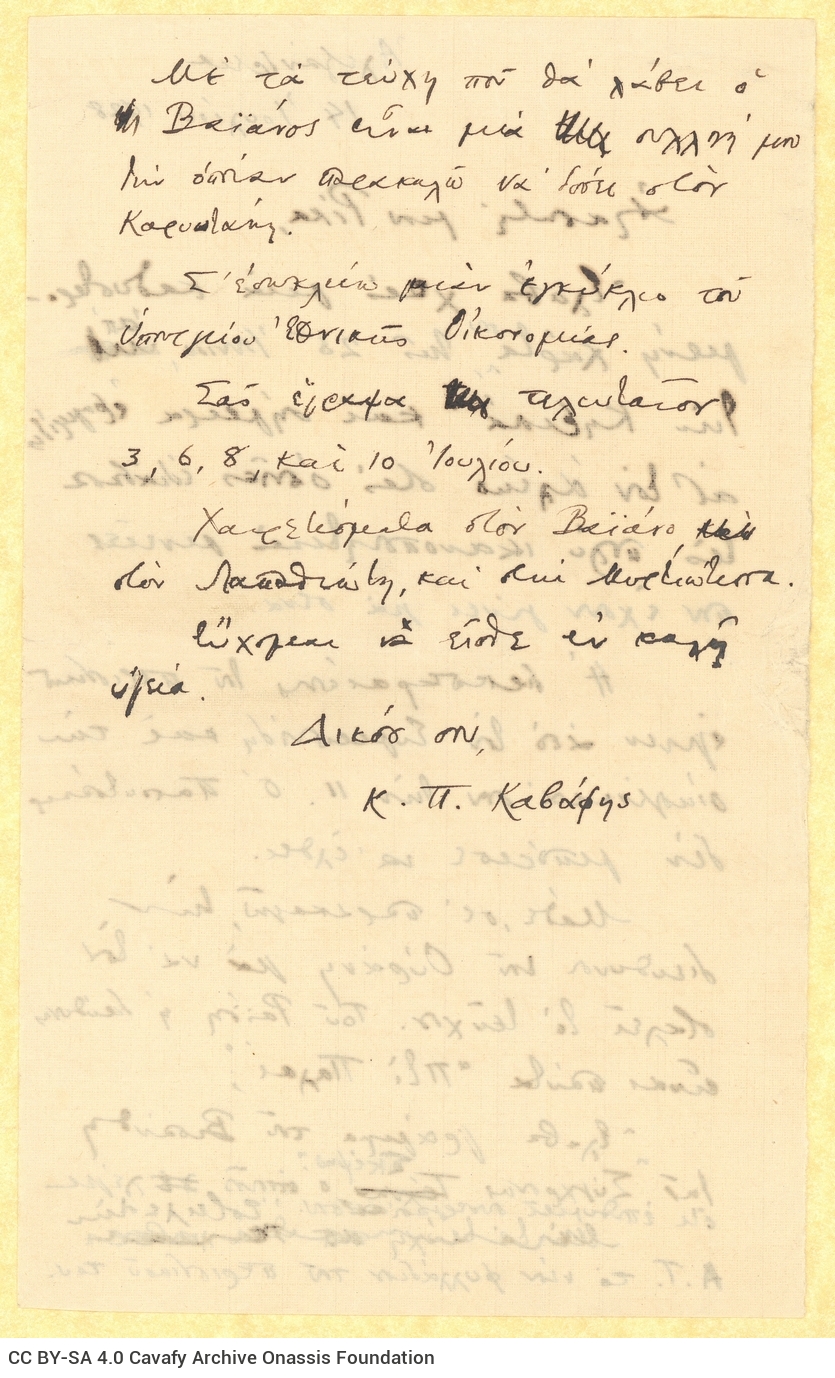 Μὲ τὰ τεύχη ποῦ θὰ λάβει ὁ
Βαϊάνος εἶναι μιὰ συλλογή μου
τὴν ὁποίαν παρακαλῶ νὰ δώσει στὸν
Καρυωτάκη.
Σ' ἐσωκλείω μιὰν ἐγκύκλιο τοῦ
Ὑπουργείου Ἐθνικῆς Οἰκονομίας.
Σᾶς ἔγραψα τελευταῖον
3, 6, 8, καὶ 10 Ἰουλίου.
Χαιρετίσματα στὸν Βαϊάνο,
στὸν Λαπαθιώτη, καὶ στὴν Μυρτιώτισσα.
Εὔχομαι νὰ εἶσθε ἐν καλῇ
ὑγείᾳ.
Δικός σου,
Κ. Π. Καβάφης
CC BY-SA 4.0 Cavafy Archive Onassis Foundation